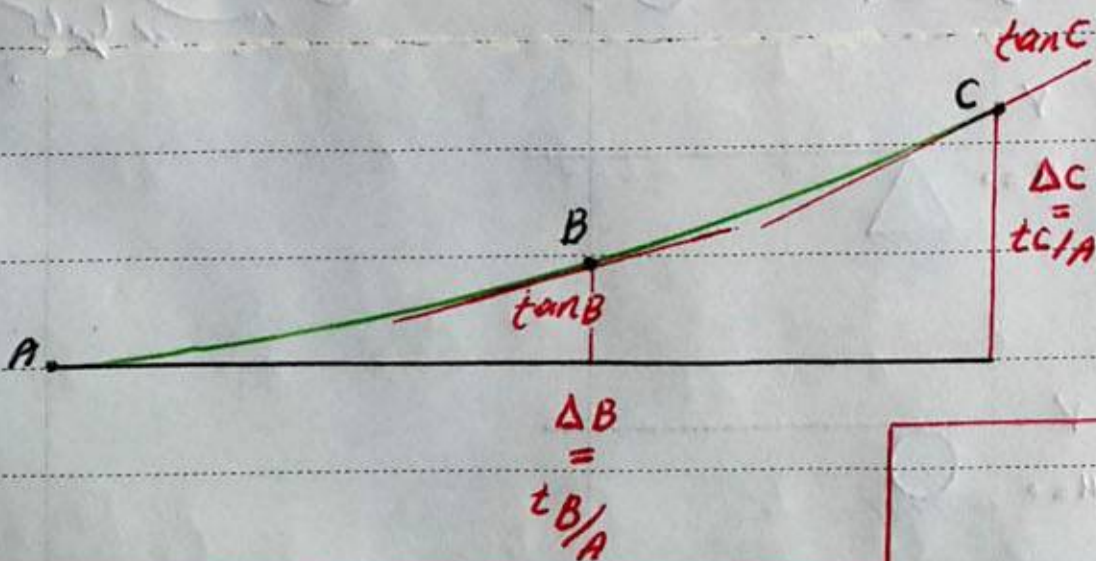 tanC
C
ΔC
=
tC/A
B
tanB
A
ΔB
=
tB/A